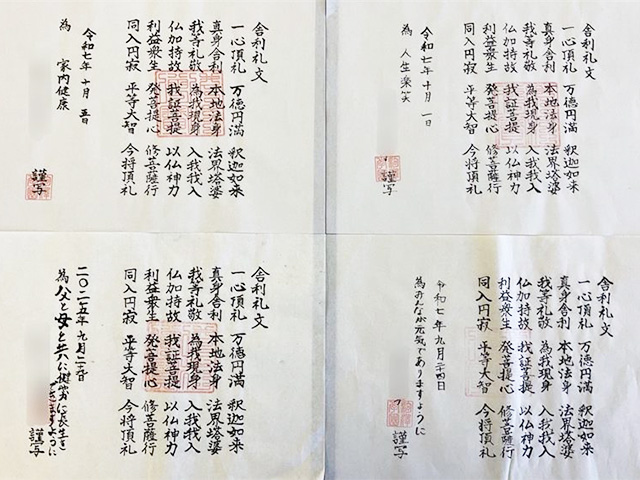 舎利礼文
一心頂礼 万徳円満 釈迦如来
真身舎利 本地法身 法界塔婆
我等礼敬 為我現身 入我我入
仏加持故 我証菩提 以仏神力
利益衆生 発菩提心 修菩薩行
同入円寂 平等大智 今将頂礼
令和七年 十月 五日
為 家内健康
謹写
舎利礼文
一心頂礼 万徳円満 釈迦如来
真身舎利 本地法身 法界塔婆
我等礼敬 為我現身 入我我入
仏加持故 我証菩提 以仏神力
利益衆生 発菩提心 修菩薩行
同入円寂 平等大智 今将頂礼
令和七年 十月 一日
為 人生楽笑
謹写
舎利礼文
一心頂礼 万徳円満 釈迦如来
真身舎利 本地法身 法界塔婆
我等礼敬 為我現身 入我我入
仏加持故 我証菩提 以仏神力
利益衆生 発菩提心 修菩薩行
同入円寂 平等大智 今将頂礼
二〇二五年 九月
為父と母と共に 長生き
できますように
謹写
舎利礼文
一心頂礼 万徳円満 釈迦如来
真身舎利 本地法身 法界塔婆
我等礼敬 為我現身 入我我入
仏加持故 我証菩提 以仏神力
利益衆生 発菩提心 修菩薩行
同入円寂 平等大智 今将頂礼
令和七年 九月二十四日
為みんなが元気でありますように
謹写